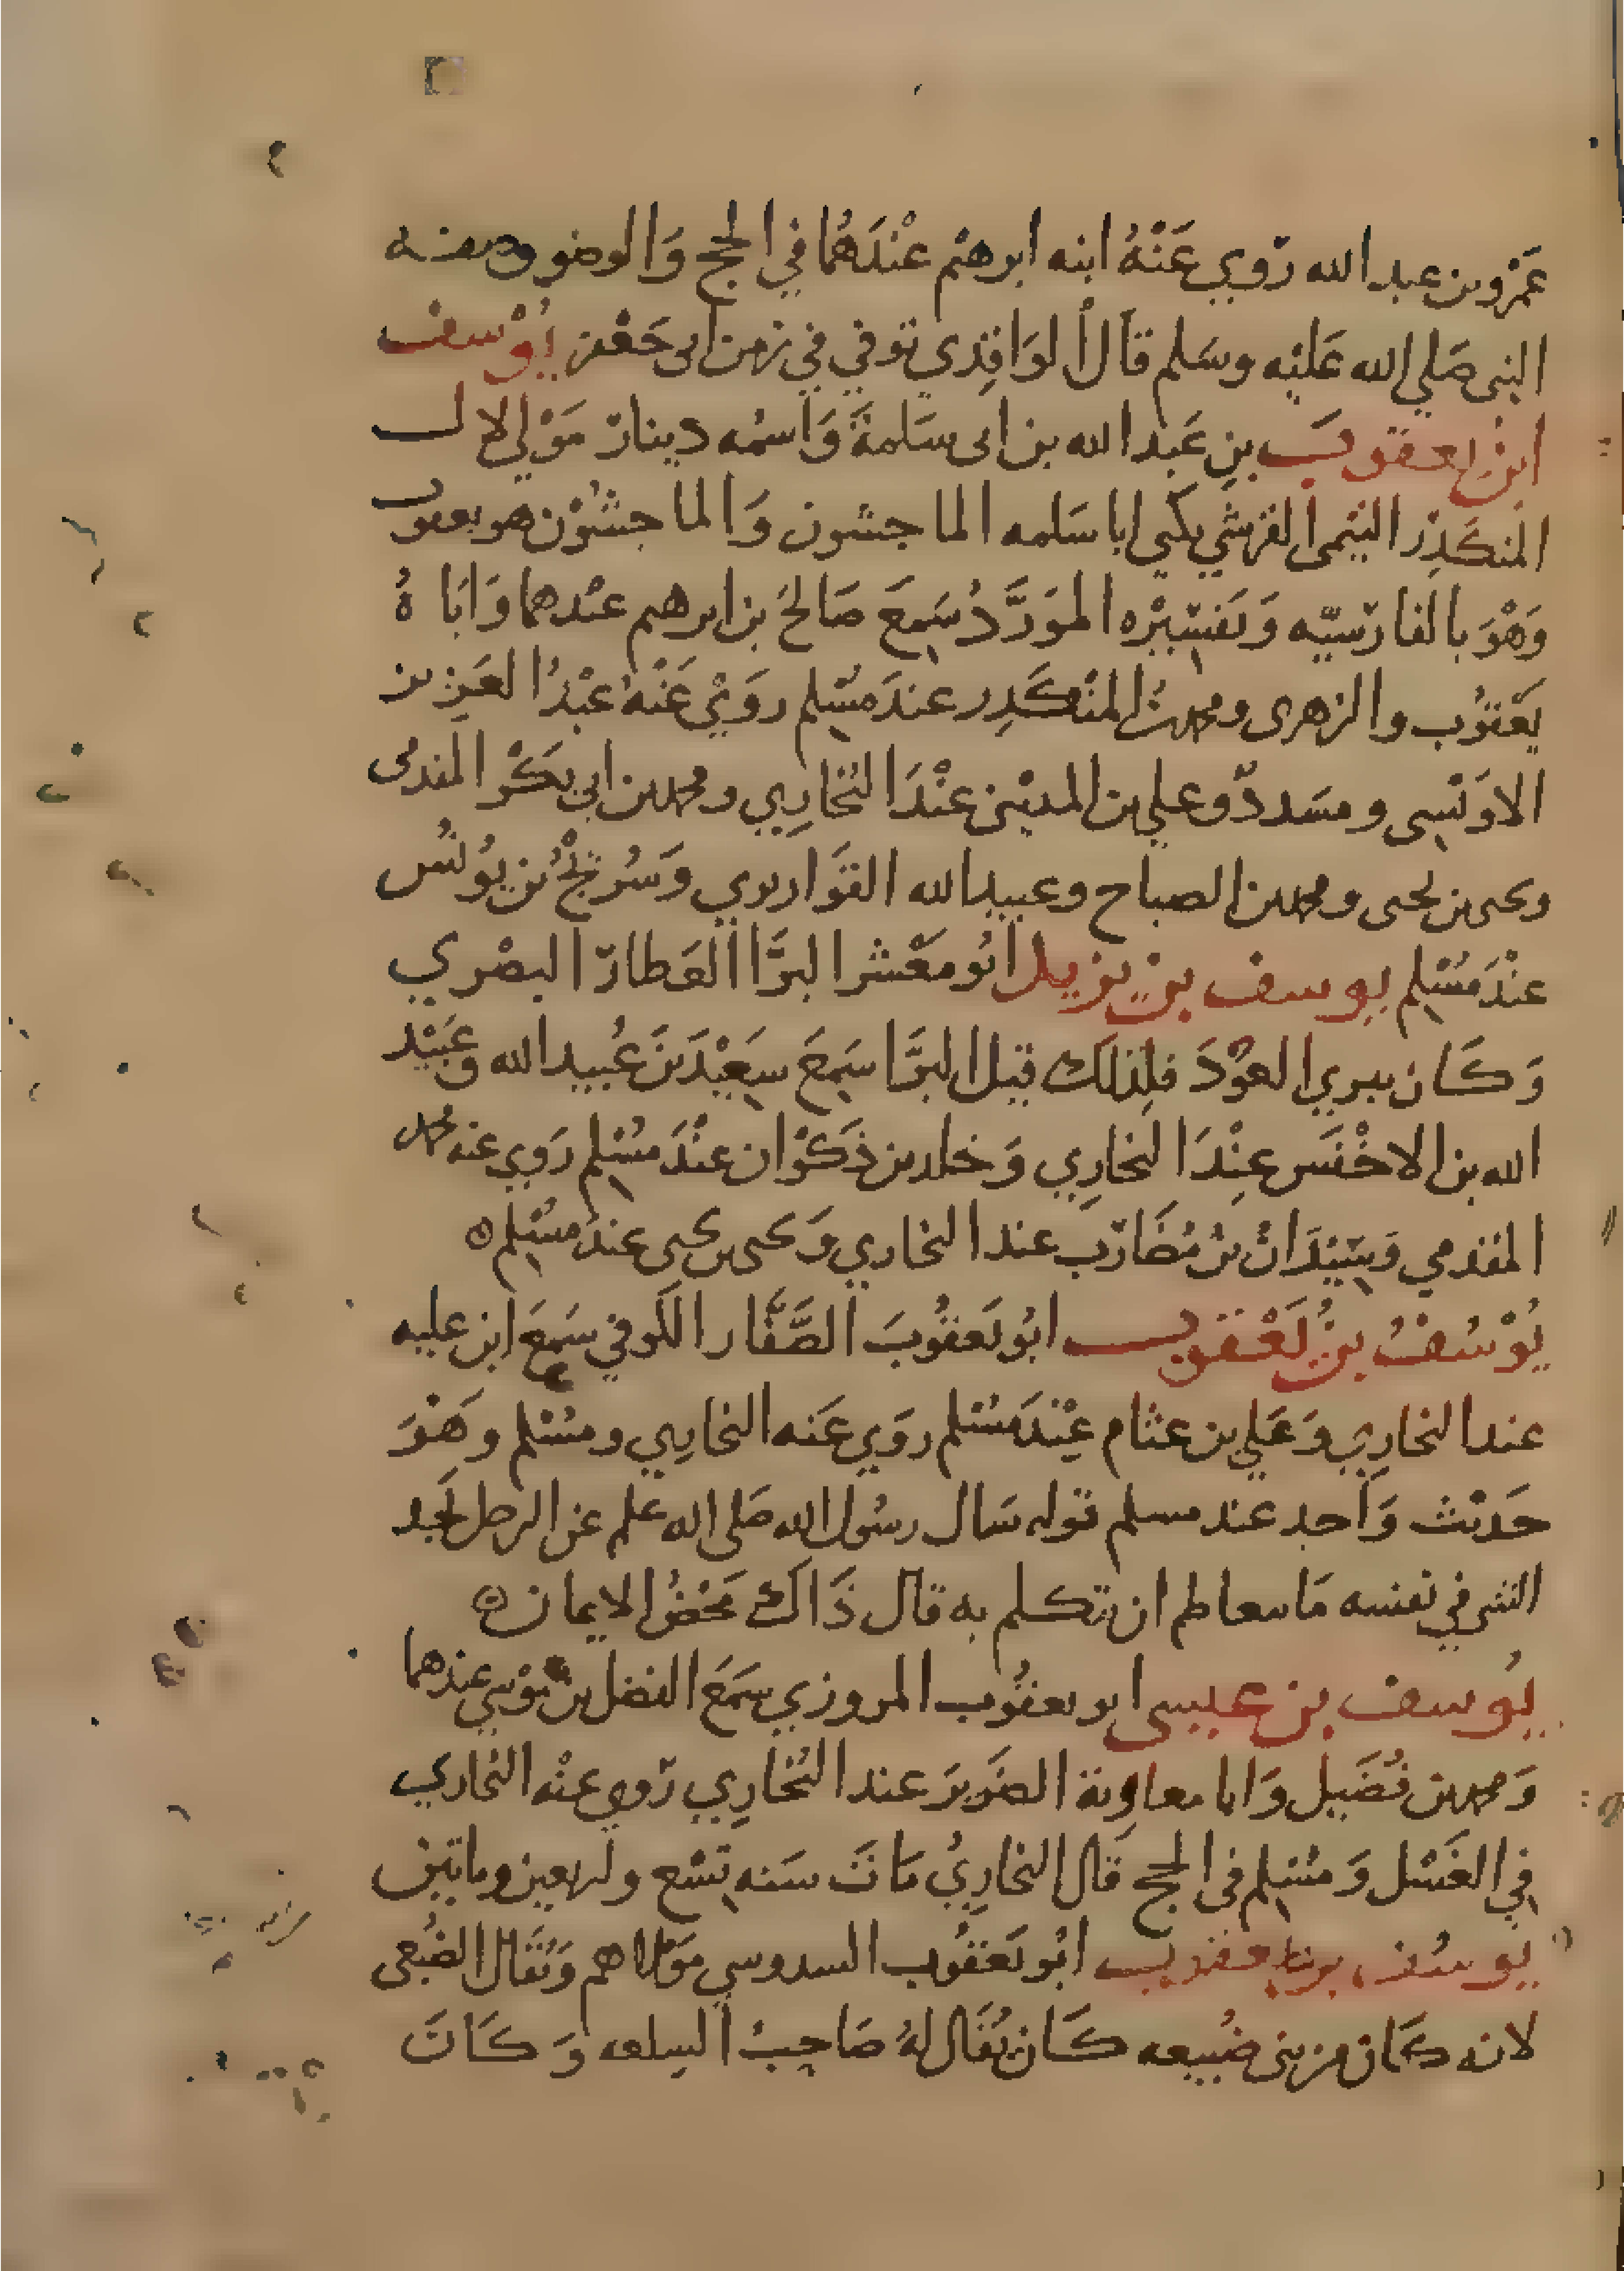 عَمْرو بن عبد الله رَوي عَنْهُ ابنه ابرهيم عْندَهُمَا في الحج وَالوضو وصفة
النبى صَلي الله عَليْه وسَلم قَال الوَاقِدي توفي في زمن ابى جَعْفر يُوْسف
ابنُ يعقوبَ بنِ عَبد الله بن ابى سَلمةَ وَاسمُه دينار مَوْلي لال
المنكَدِر التيمى القرشي يكنى ابا سَلمه الماجشون وَالماجشُوْن هو يعقوب
وَهْوَ بالفارسيّه وَتفسِيْره الموَرَّدُ سَمعَ صَالحَ بن ابرهيم عنْدهما وَابَاهُ
يَعْقوُب والزهرى ومحمد بن المنْكَدِر عندَ مسْلم روَيْ عَنْهُ عبْدُ العَزيز بن
الاوَيْسِى ومسَدد وعلي بن المديْنى عنْدَ البُخارِي ومحمد بن ابي بَكْر المقدمى
ويحيى بن يحيى ومحمد بن الصباح وعبيد الله القوَاريري وَسُرَيْجُ بْن يُونُس
عنْدَ مُسْلم يوسف بن يزيد ابُو مَعْشر البَرَّا العَطار البصْري
وَكَان يبري العوْدَ فلِذلك قيل البَرَّا سَمِعَ سَعِيْدَ بْنَ عُبيد الله وعبَيْد
الله بن الاخْنَس عِنْدَ البخَارِي وَخلد بن ذَكوْان عنْدَ مسُلم رَوي عنه محمد
المقدمي وَسِيْدَانُ بنُ مُضَارب عند البخاري وَيحيى بن يحيى عندَ مسْلم ⊙
يُوْسُفُ بنُ يَعْقوب ابُو يَعقوُبَ الصَّفَّار الكوفي سَمِعَ ابن عليه
عند البخارِي وَعَلي بن عثام عِنْدَ مسْلم روَي عَنه البخارِي ومسْلم وهَوْ
حَدْيث وَاحد عند مسلم قوله سَال رسُول الله صَلى الله علم عن الرجل يجد
الشى في نفسه مَا يتعاظم ان يتكلم به قال ذَاكَ مَحْضُ الايمان ⊙
يُوسف بن عيسى ابو يعقوُب المروزي سَمَعَ الفضل بن مُوْسي عندهما
وَمحمد بن فُضَيل وَابا معاوية الضَرِيرَ عند البُخَارِي رَوي عنْه البُخاري
في الغسْل وَمسْلم في الحج قَال البخارِيُ مَاتَ سَنه تسْع واربعين وماتين
يُوسُف بن يعقوب ابُو يَعقوُب السدوسي موَلاهم وَيُقَال الضُبَعى
لانه كَان من بنى ضُبيعه كَان يُقَال لهُ صَاحِبُ السِلعه وَكَانَ